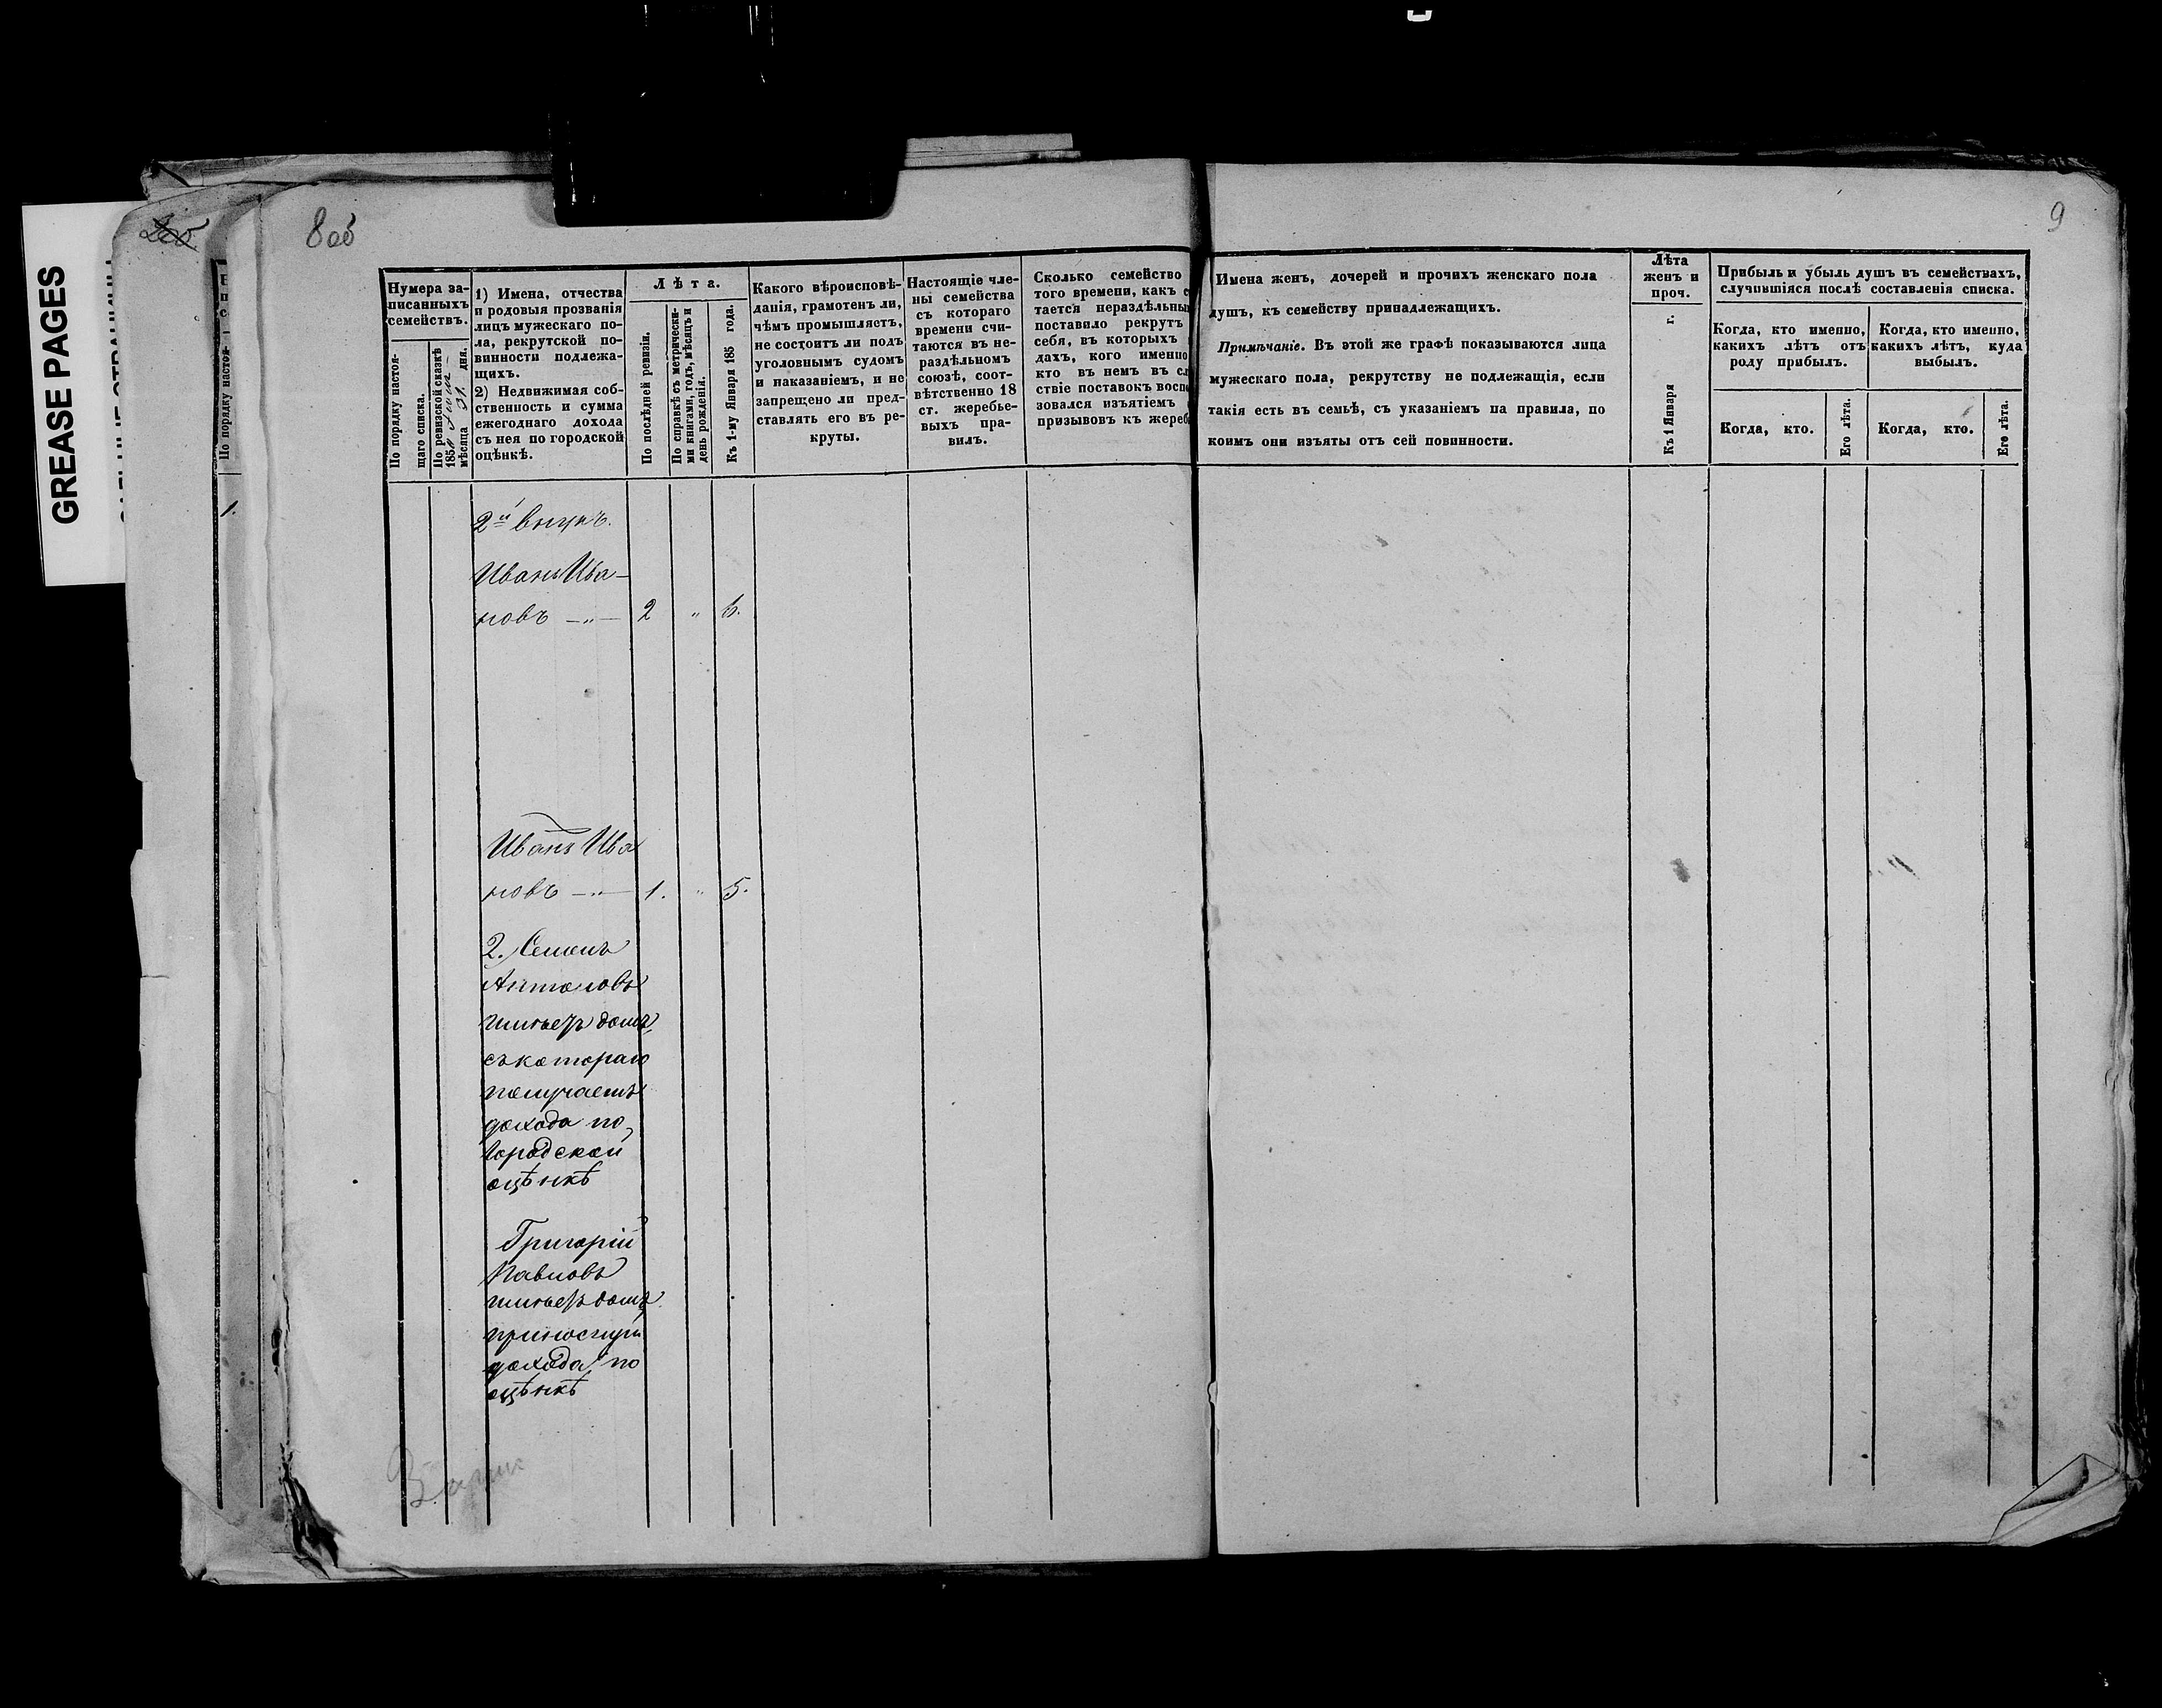 GREASE PAGES
2об
8об
9
По порядку настоя-
1.
Нумера за-
писанныхъ
семействъ.
По порядку настоя-
щаго списка.
По ревизской сказкѣ
185
мѣсяца 31. дня.
1) Имена, отчества
и родовыя прозванія
лицъ мужескаго по-
ла, рекрутской по-
винности подлежа-
щихъ.
2) Недвижимая соб-
ственность и сумма
ежегоднаго дохода
съ нея по городской
оцѣнкѣ.
Лѣта.
По послѣдней ревизіи.
По справкѣ съ метрически-
ми книгами, годъ, мѣсяцъ и
день рожденія.
Къ 1-му Января 185 года.
Какого вѣроисповѣ-
данія, грамотенъ ли,
чѣмъ промышляетъ,
не состоитъ ли подъ
уголовнымъ судомъ
и наказаніемъ, и не
запрещено ли пред-
ставлять его въ ре-
круты.
Настоящіе чле-
ны семейства
съ котораго
времени счи-
таются въ не-
раздѣльномъ
союзѣ, соот-
вѣтственно 18
ст. жеребье-
выхъ пра-
вилъ.
Сколько семейство
того времени, какъ с
тается нераздѣльны
поставило рекрутъ
себя, въ которыхъ
дахъ, кого именно
кто въ немъ въ сл
ствіе поставокъ восп
зовался изъятіемъ
призывовъ къ жереб
Имена женъ, дочерей и прочихъ женскаго пола
душъ, къ семейству принадлежащихъ.
Примѣчаніе. Въ этой же графѣ показываются лица
мужескаго пола, рекрутству не подлежащія, если
такія есть въ семьѣ, съ указаніемъ на правила, по
коимъ они изъяты отъ сей повинности.
Лѣта
женъ и
проч.
Къ 1 Января г.
Прибыль и убыль душъ въ семействахъ,
случившіяся послѣ составленія списка.
Когда, кто именно,
какихъ лѣтъ отъ
роду прибылъ.
Когда, кто именно,
какихъ лѣтъ, куда
выбылъ.
Когда, кто.
Его лѣта.
Когда, кто.
Его лѣта.
2й внукъ.
Иванъ Ива-
новъ —„— 2 „ 6.
Иванъ Ива
новъ —„— 1. „ 5.
2. Семенъ
Антоновъ
имѣетъ домъ,
съ котораго
получаетъ
дохода по
городской
оцѣнкѣ
Григорій
Павловъ
имѣетъ домъ,
приносящій
дохода по
оцѣнкѣ